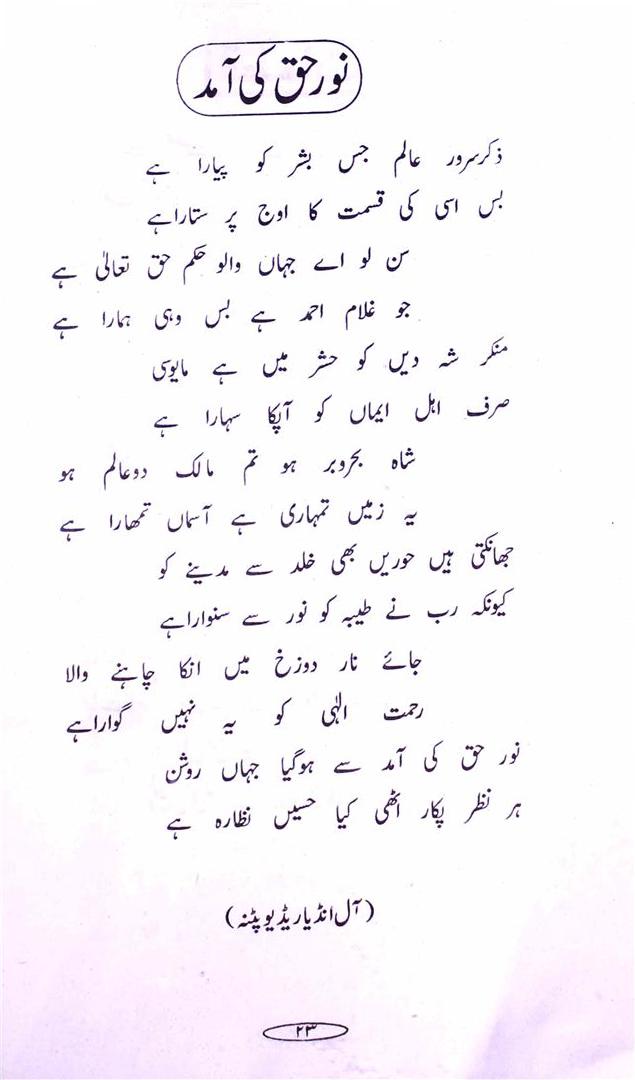 نور حق کی آمد
ذکر سرور عالم جس بشر کو پیارا ہے
بس اسی کی قسمت کا اوج پر ستارا ہے
سن لو اے جہاں والو حکم حق تعالیٰ ہے
جو غلام احمد ہے بس وہی ہمارا ہے
منکر شہ دیں کو حشر میں ہے مایوسی
صرف اہل ایماں کو آپکا سہارا ہے
شاہ بحروبر ہو تم مالک دو عالم ہو
یہ زمیں تمہاری ہے آسماں تمھارا ہے
جھانکتی ہیں حوریں بھی خلد سے مدینے کو
کیونکہ رب نے طیبہ کو نور سے سنوارا ہے
جائے نار دوزخ میں انکا چاہنے والا
رحمت الٰہی کو یہ نہیں گوارا ہے
نور حق کی آمد سے ہوگیا جہاں روشن
ہر نظر پکار اٹھی کیا حسیں نظارہ ہے
(آل انڈیا ریڈیو پٹنہ)
۲۳